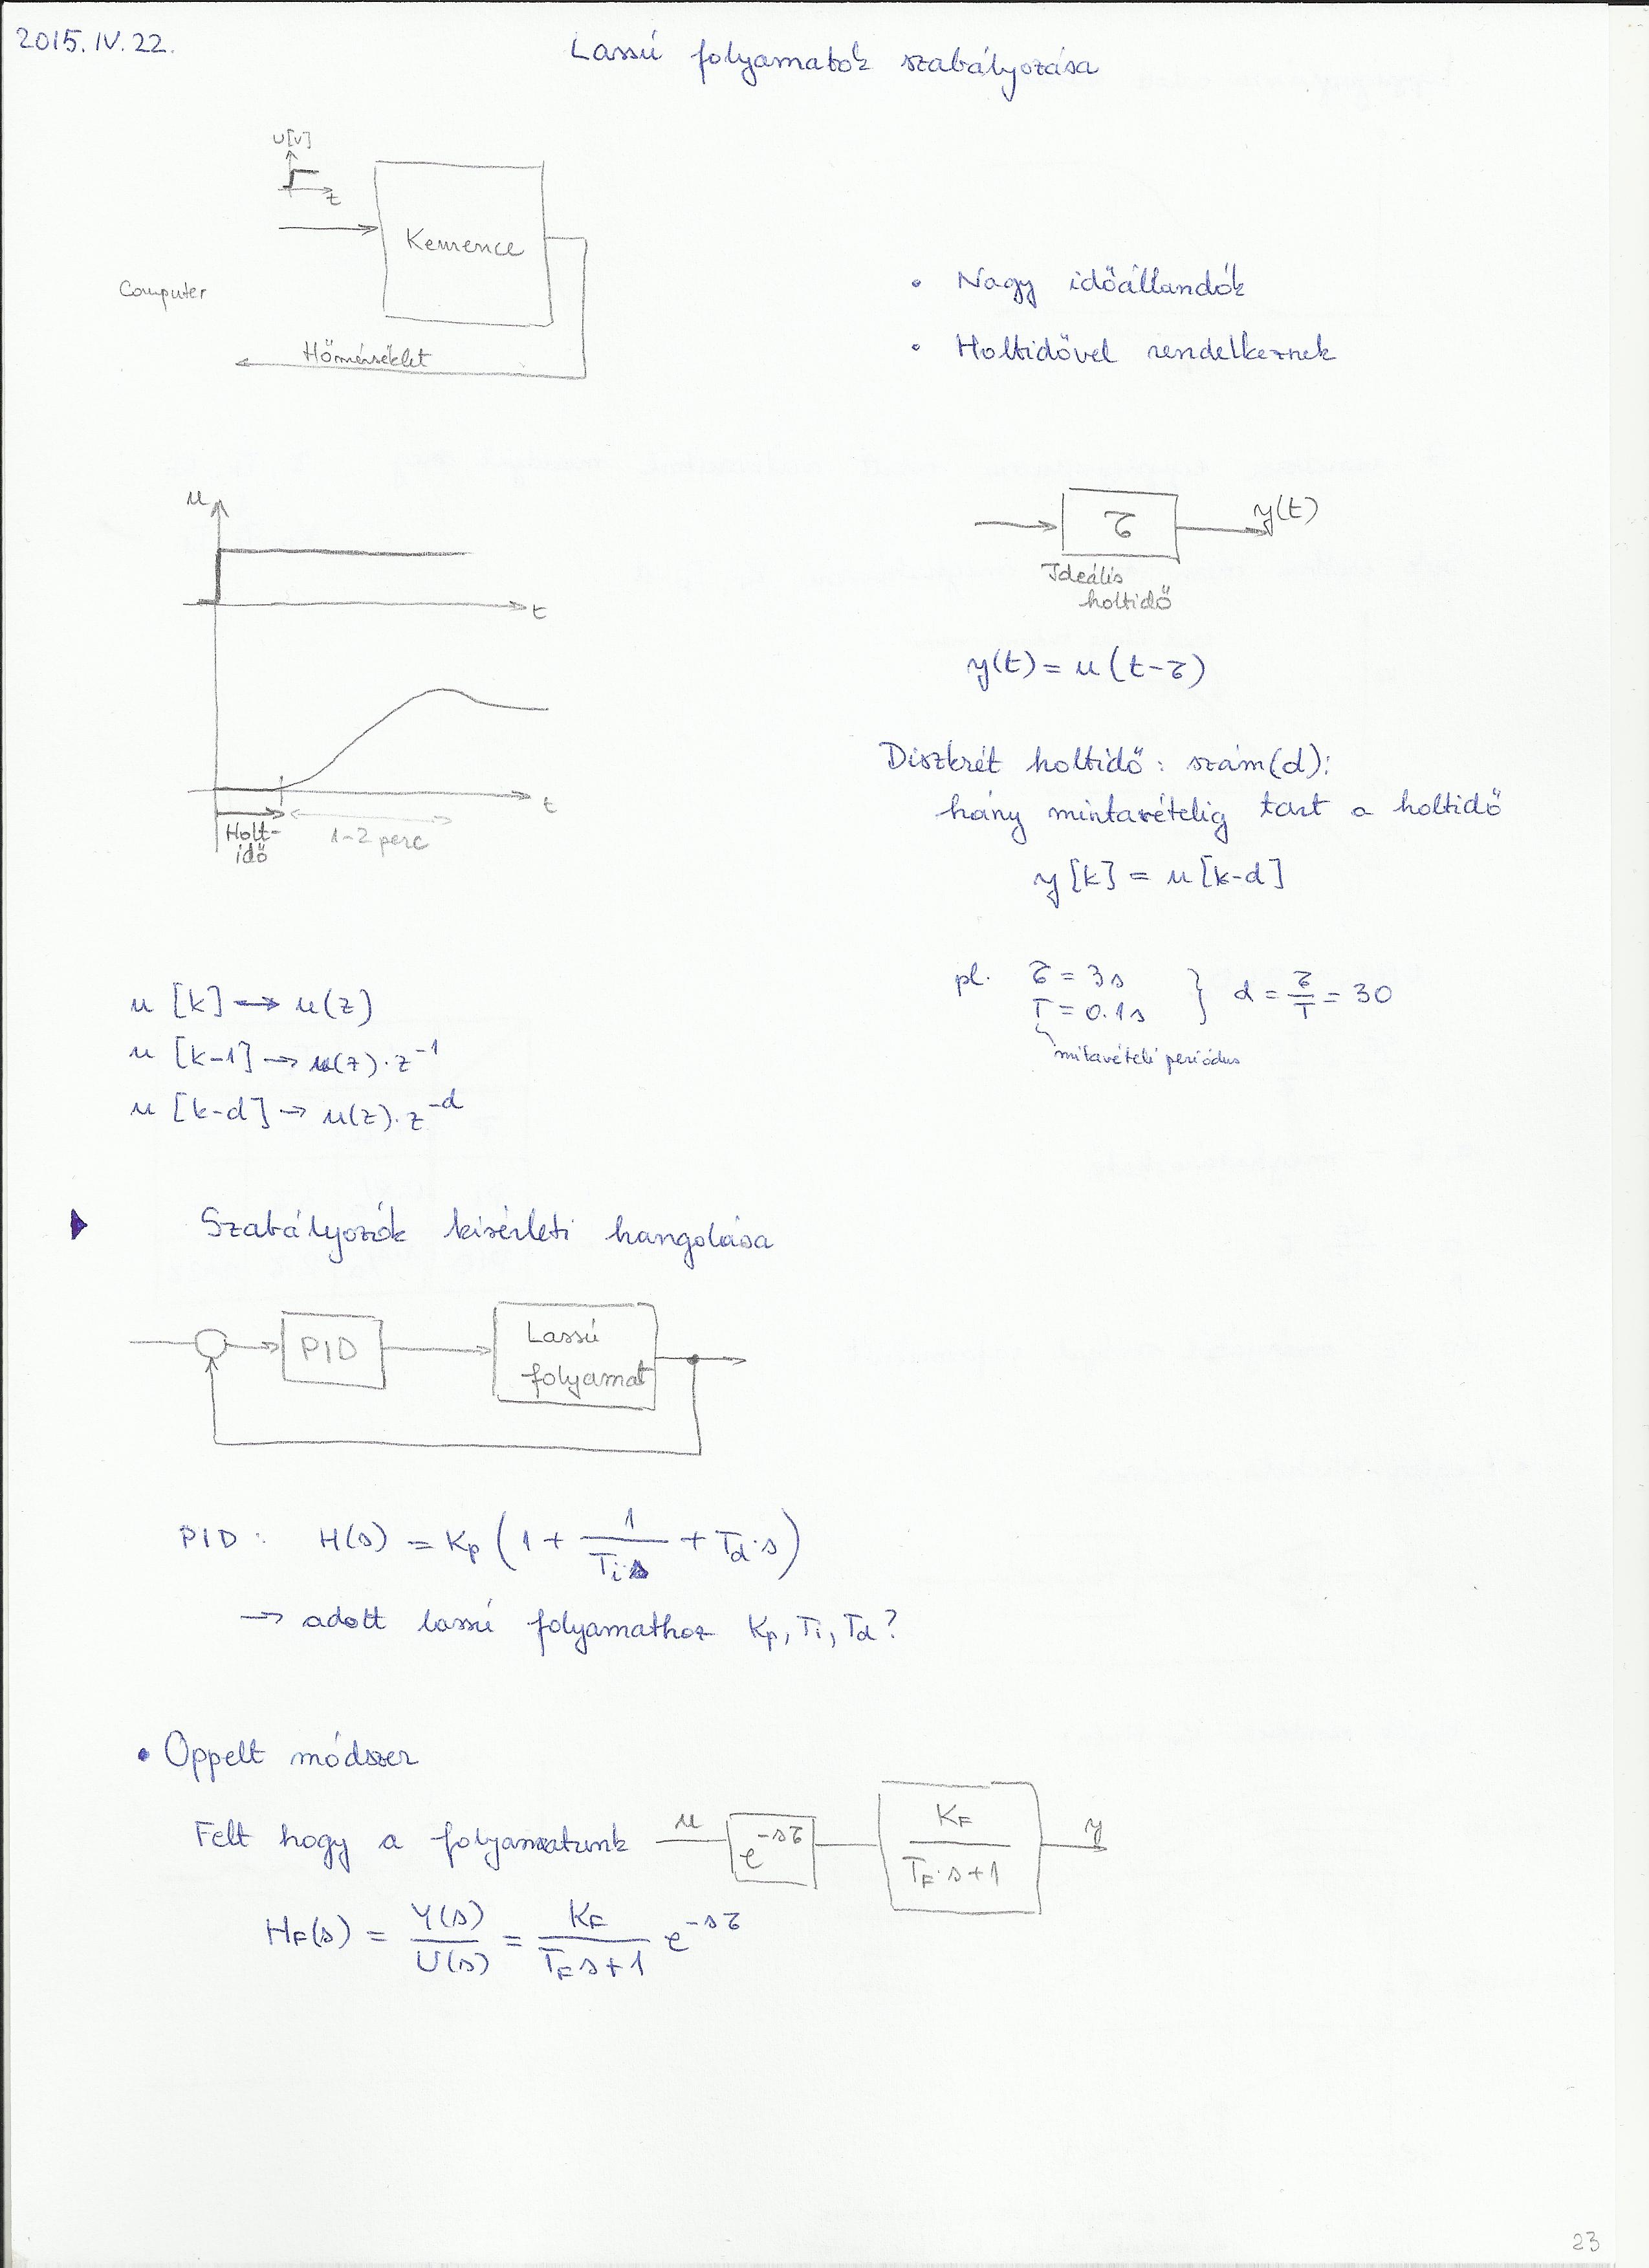 2015. IV. 22.
Lassú folyamatok szabályozása
U[V]
t
Kemence
Computer
Hőmérséklet
• Nagy időállandók
• Holtidővel rendelkeznek
u
t
t
Holt-
idő
1-2 perc
τ
y(t)
Ideális
holtidő
y(t) = u(t-τ)
Diszkrét holtidő: szám(d):
hány mintavételig tart a holtidő
y[k] = u[k-d]
pl. τ = 3s
T = 0.1s } d = τ/T = 30
mitavételi periódus
u[k] → u(z)
u[k-1] → u(z)·z⁻¹
u[k-d] → u(z)·z⁻ᵈ
Szabályozók kisérleti hangolása
PID
Lassú
folyamat
PID: H(s) = Kp (1 + 1/(Ti·s) + Td·s)
→ adott lassú folyamathoz Kp, Ti, Td?
• Oppelt módszer
Felt hogy a folyamatunk u e^(-sτ) K_F/(T_F·s+1) y
H_F(s) = Y(s)/U(s) = K_F/(T_F s+1) e^(-sτ)
23